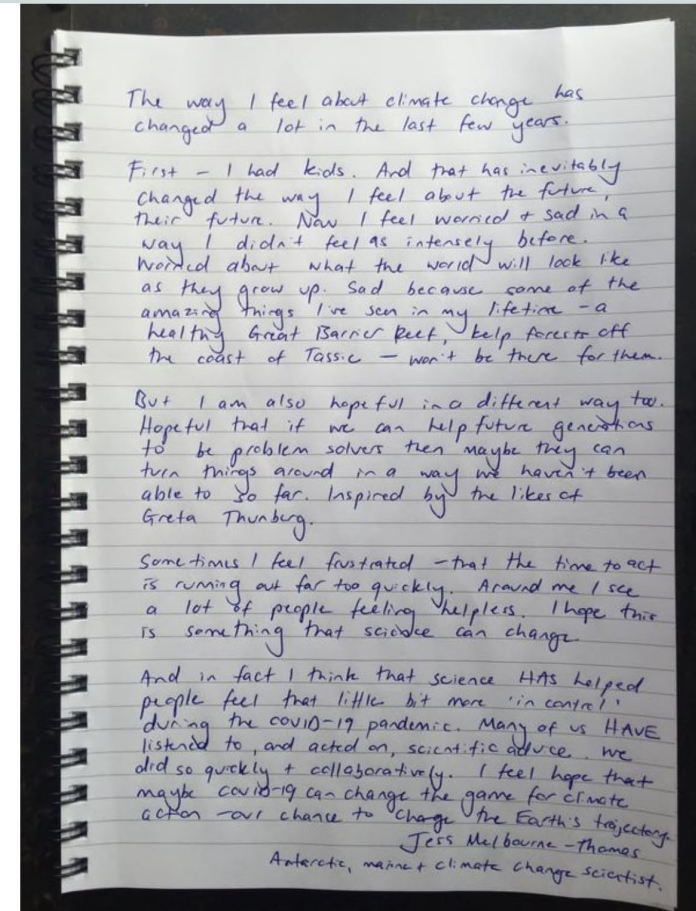 The way I feel about climate change has
changed a lot in the last few years.
First - I had kids. And that has inevitably
changed the way I feel about the future,
their future. Now I feel worried + sad in a
way I didn't feel as intensely before.
Worried about what the world will look like
as they grow up. Sad because some of the
amazing things I've seen in my lifetime - a
healthy Great Barrier Reef, kelp forests off
the coast of Tassie - won't be there for them.
But I am also hopeful in a different way too.
Hopeful that if we can help future generations
to be problem solvers then maybe they can
turn things around in a way we haven't been
able to so far. Inspired by the likes of
Greta Thunberg.
Sometimes I feel frustrated - that the time to act
is running out far too quickly. Around me I see
a lot of people feeling helpless. I hope this
is something that science can change.
And in fact I think that science HAS helped
people feel that little bit more 'in control'
during the COVID-19 pandemic. Many of us HAVE
listened to, and acted on, scientific advice. We
did so quickly + collaboratively. I feel hope that
maybe covid-19 can change the game for climate
action - our chance to change the Earth's trajectory.
Jess Melbourne-Thomas
Antarctic, marine + climate change scientist.